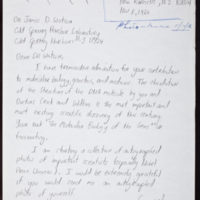 Nov 6, 1986
Dr James D. Watson
Cold Spring Harbor Laboratory
Cold Spring Harbor N.Y. 11724
Dear Dr Watson,
I have tremendous admiration for your contribution
to molecular biology, genetics, and medicine. The elucidation
of the structure of the DNA molecule by you and
Francis Crick and Wilkins is the most important and
most exciting scientific discovery of this century.
Your text "The Molecular Biology of the Gene" is
fascinating.
I am starting a collection of autographed
photos of important scientists (especially those
Nobel Winners). I would be extremely grateful
if you would send me an autographed
photo of yourself.